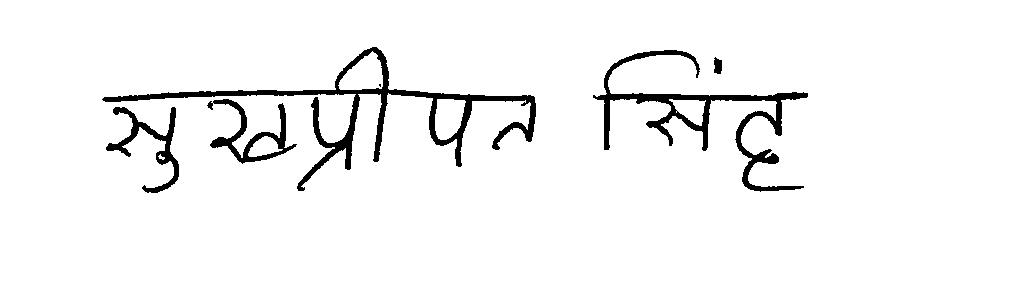 सुखप्रीपत सिंह